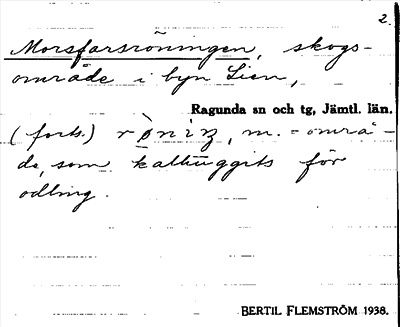 2.
Morsfarsröningen, skogs-
område i byn Lien,
Ragunda sn och tg, Jämtl. län.
(forts.) rø̀niŋ, m. = områ-
de, som kalhuggits för
odling.
BERTIL FLEMSTRÖM 1938.